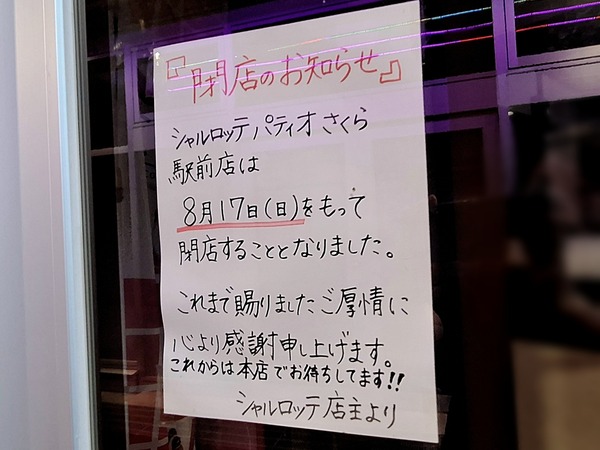 『閉店のお知らせ』
シャルロッテパティオさくら
駅前店は
8月17日(日)をもって
閉店することとなりました。
これまで賜りましたご厚情に
心より感謝申し上げます。
これからは本店でお待ちしてます!!
シャルロッテ店主より